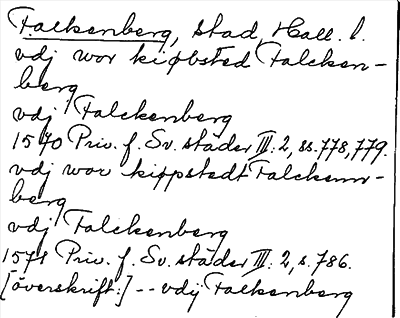 Falkenberg, stad, Hall. l.
vdj wor kipbsted Falcken-
berg
vdj Falckenberg
1570 Priv. f. Sv. städer III: 2, ss. 778, 779.
vdj wor kippstedt Falckenn-
berg
vdj Falckenberg
1571 Priv. f. Sv. städer III: 2, s. 786.
[överskrift:] -- vdij Falkenberg